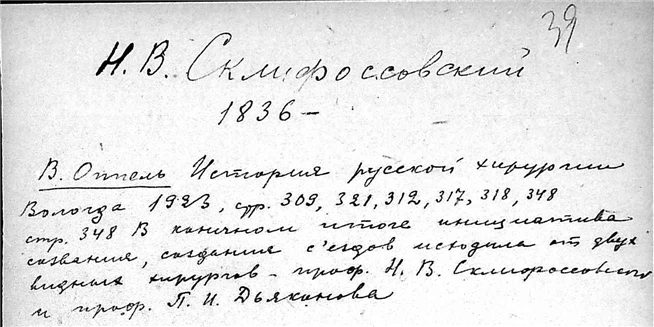 39
Н. В. Склифоссовский
1836 –
В. Оппель История русской хирургии
Вологда 1923, стр. 309, 321, 312, 317, 318, 348
стр. 348 В конечном итоге инициатива
созвания, создания с'ездов исходила от двух
видных хирургов – проф. Н. В. Склифоссовского
и проф. П. И. Дьяконова